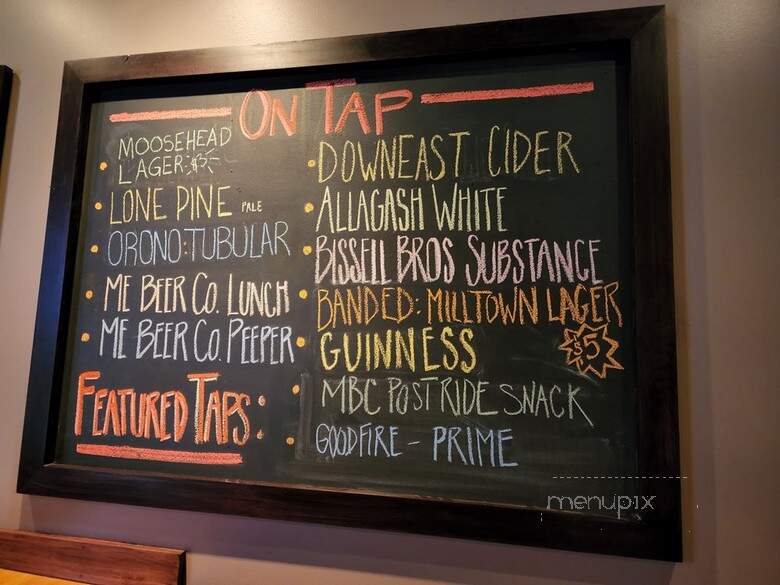 ON TAP
MOOSEHEAD
LAGER $3
LONE PINE PALE
ORONO: TUBULAR
ME BEER CO. LUNCH
ME BEER CO. PEEPER
FEATURED TAPS:
DOWNEAST CIDER
ALLAGASH WHITE
BISSELL BROS SUBSTANCE
BANDED: MILLTOWN LAGER
GUINNESS $5
MBC POST RIDE SNACK
GOODFIRE - PRIME
menupix